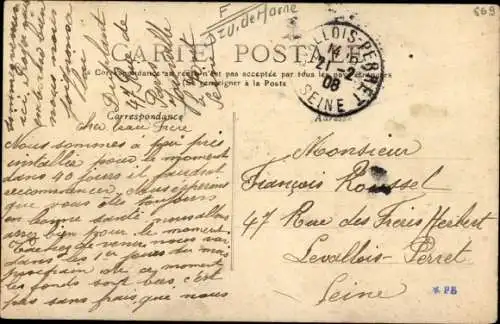 F
Sz u. de Marne
569
CARTE POSTALE
La Correspondance au recto n'est pas acceptée par tous les pays étrangers
(Se renseigner à la Poste)
LEVALLOIS-PERRET
21 -2
08
SEINE
Correspondance
Adresse
beau frère
Nous sommes à peu près
installés pour le moment
dans 40 jours il faudra
recommencer. Nous espérons
que vous êtes toujours
en bonne santé nous allons
assez bien pour le moment
Tachez de venir nous voir
dans les 1er jours du mois
prochain de ce moment
les fonds sont bas, c'est
pas sans frais que nous
sommes
ici
nous
Duplant
47 Rue de
Seine
Monsieur
François Roussel
47 Rue des Frères Herbert
Levallois-Perret
Seine